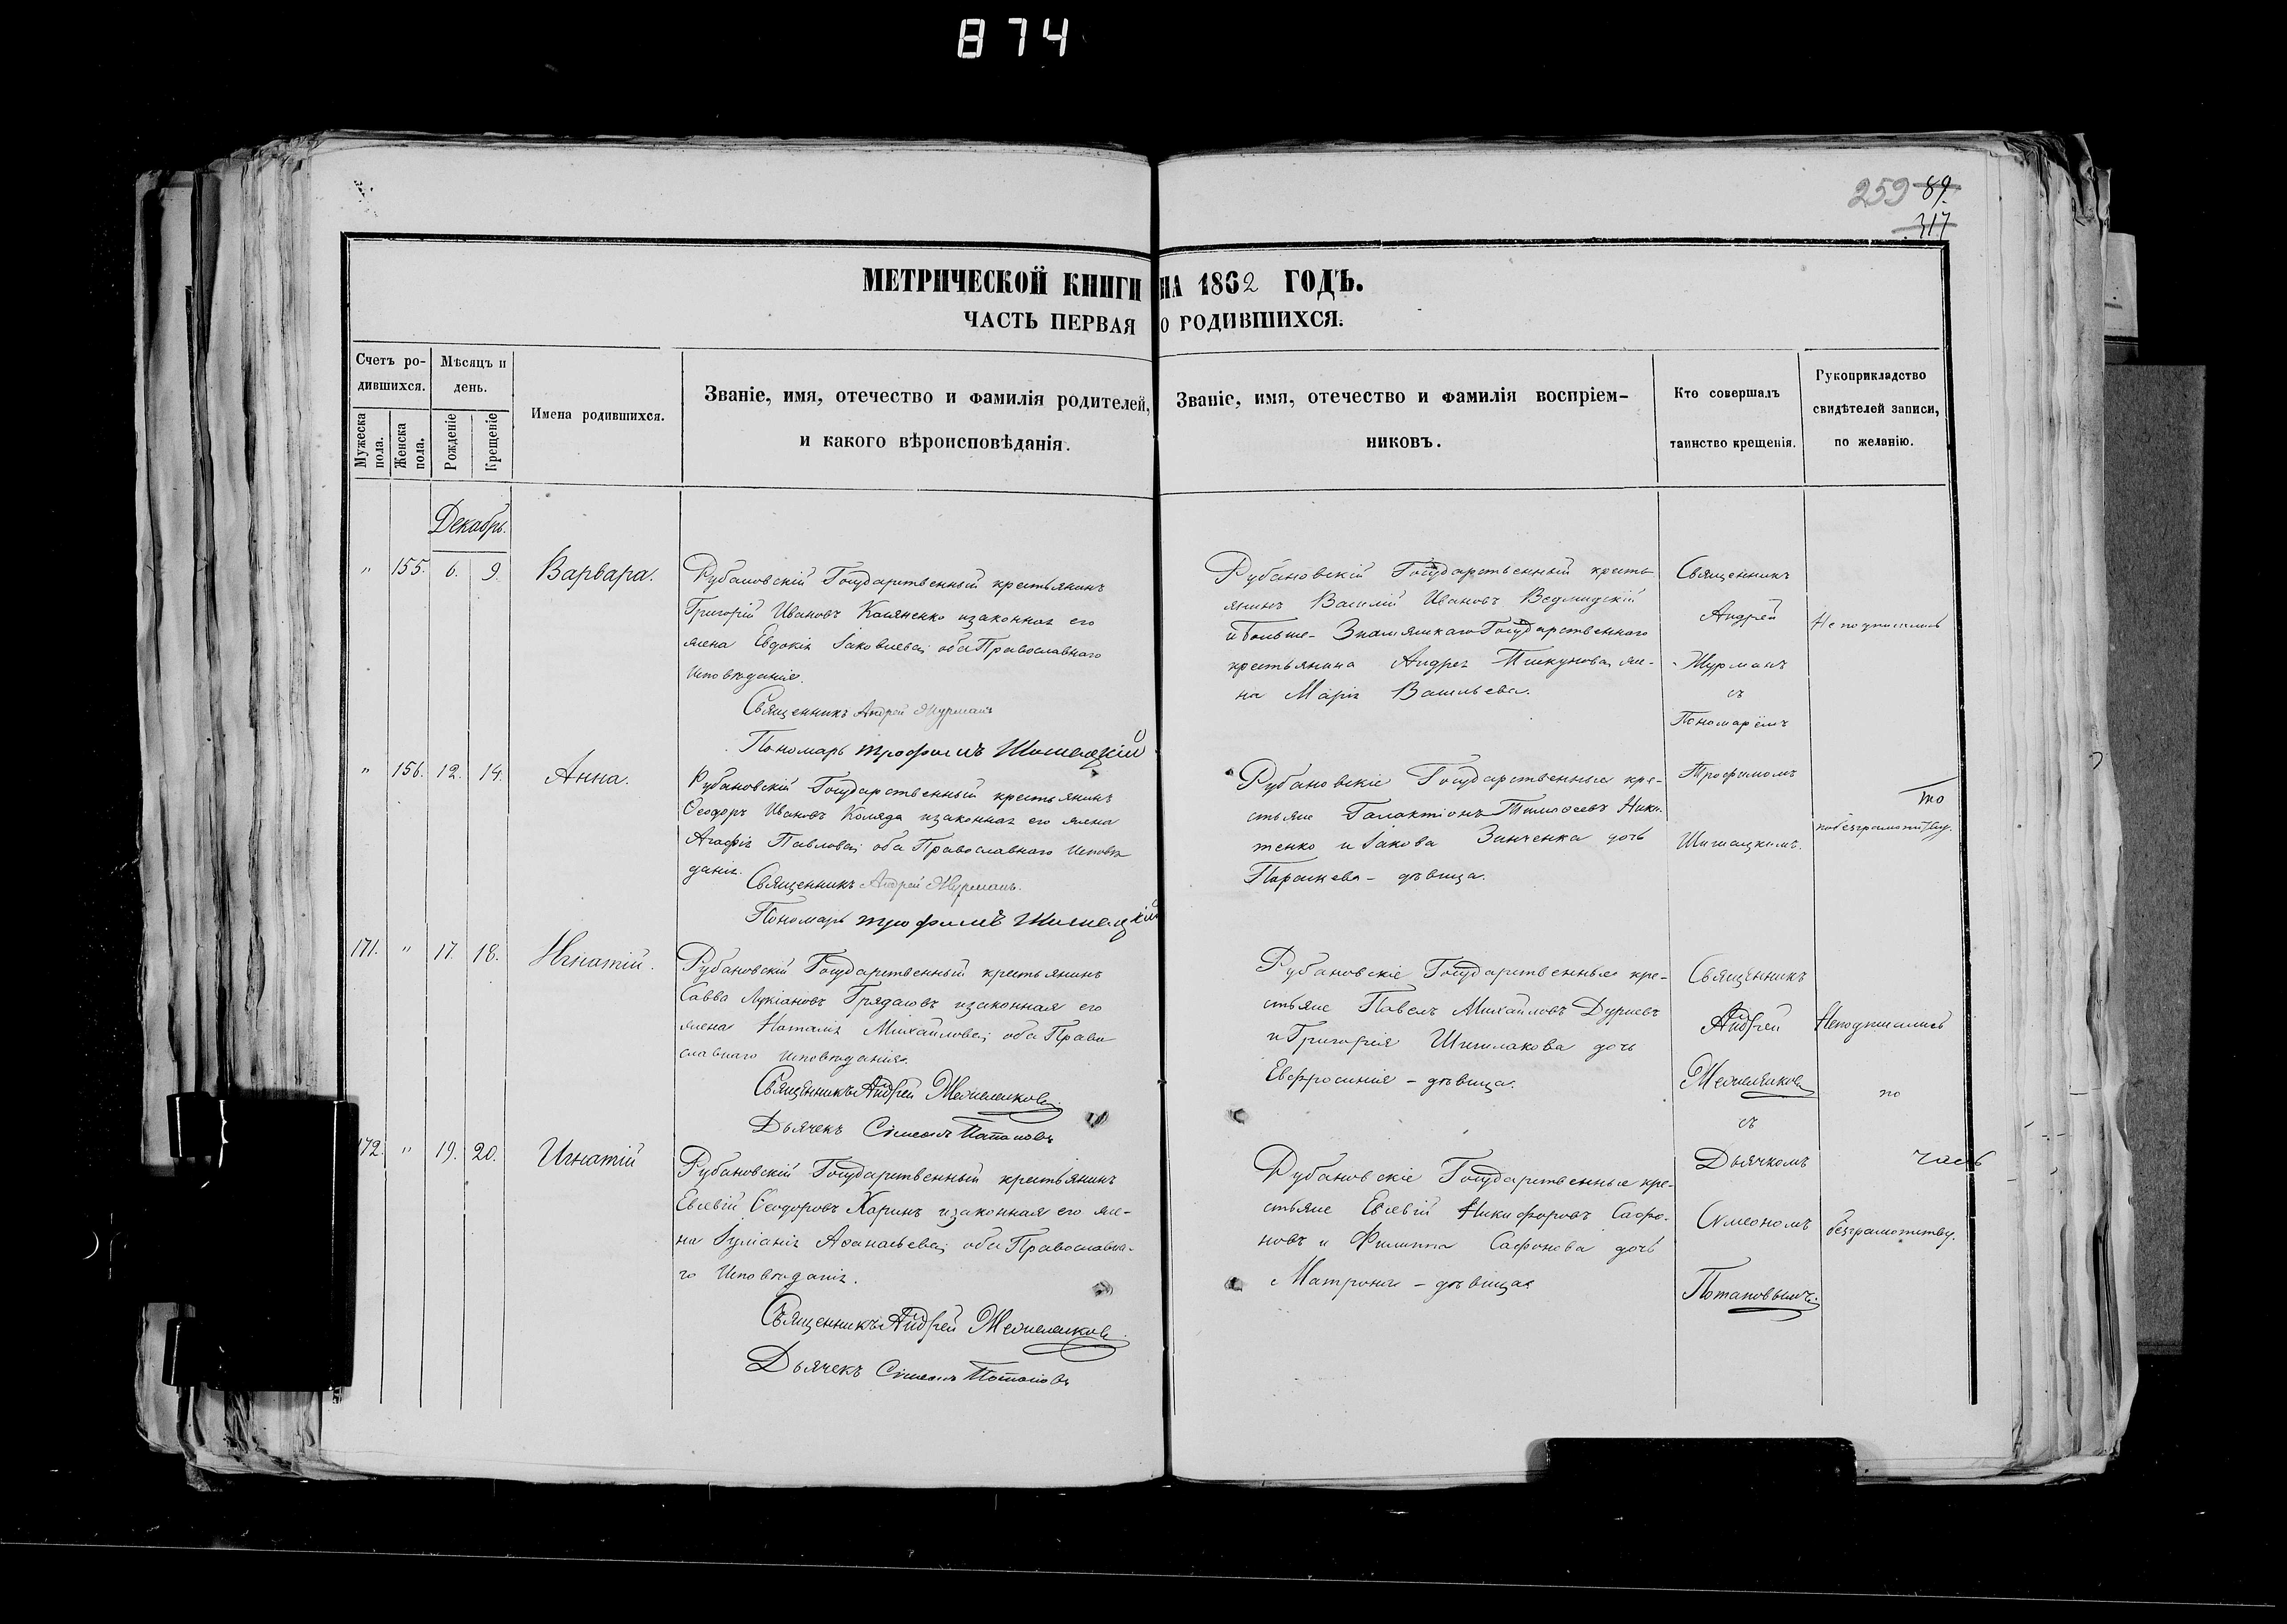 874
259 89.
317
МЕТРИЧЕСКОЙ КНИГИ НА 1862 ГОДЪ.
ЧАСТЬ ПЕРВАЯ О РОДИВШИХСЯ.
Счетъ ро-
дившихся.
Мужеска
пола.
Женска
пола.
Мѣсяцъ и
день.
Рожденіе
Крещеніе
Имена родившихся.
Званіе, имя, отечество и фамилія родителей,
и какого вѣроисповѣданія.
Званіе, имя, отечество и фамилія воспріем-
никовъ.
Кто совершалъ
таинство крещенія.
Рукоприкладство
свидѣтелей записи,
по желанію.
Декабрь.
" 155. 6. 9. Варвара.
Рубановскій Государственный крестьянинъ
Григорій Ивановъ изаконная его
жена Евдокія Іаковлева; оба Православнаго
Исповѣданія.
Священникъ Андрей Журманъ
Пономарь Трофимъ Шишацкій
Рубановскій Государственный кресть
янинъ Василій Ивановъ Ведмидскій
и Больше-Знаменскаго Государственнаго
крестьянина Андрея же-
на Марія Васильева.
" 156. 12. 14. Анна.
Рубановскій Государственный крестьянинъ
Ѳеодоръ Ивановъ Коляда изаконная его жена
Агафія Павлова; оба Православнаго Исповѣ
данія.
Священникъ Андрей Журманъ.
Пономарь Трофимъ Шишацкій
Рубановскіе Государственные кре-
стьяне Галактіонъ Тимоѳеевъ Ники-
тенко и Іакова Занченка дочь
Параскева - дѣвица.
Священникъ
Андрей
Журманъ
съ
Пономарёмъ
Трофимомъ
Шишацкимъ.
Не подписались
по безграмотству.
171. " 17. 18. Игнатій.
Рубановскій Государственный крестьянинъ
Савва Лукіановъ изаконная его
жена Наталія Михайлова; оба Право
славнаго исповѣданія.
Священникъ Андрей
Дьячекъ Сімеонъ Потаповъ
Рубановскіе Государственные кре-
стьяне Павелъ Михайловъ
и Григорія дочь
Евфросинія - дѣвица.
172. " 19. 20. Игнатій
Рубановскій Государственный крестьянинъ
Евсевій Ѳеодоровъ Каринъ изаконная его же-
на Іуліанія Аѳанасьева; оба Православна-
го Исповѣданія.
Священникъ Андрей
Дьячекъ Сімеонъ Потаповъ
Рубановскіе Государственные кре-
стьяне Евсевій Никифоровъ Сафо-
новъ и Филиппа Сафонова дочь
Матрона - дѣвица
Священникъ
Андрей
съ
Дьячкомъ
Сѵмеономъ
Потаповымъ.
Неподписались
по
безграмотству.